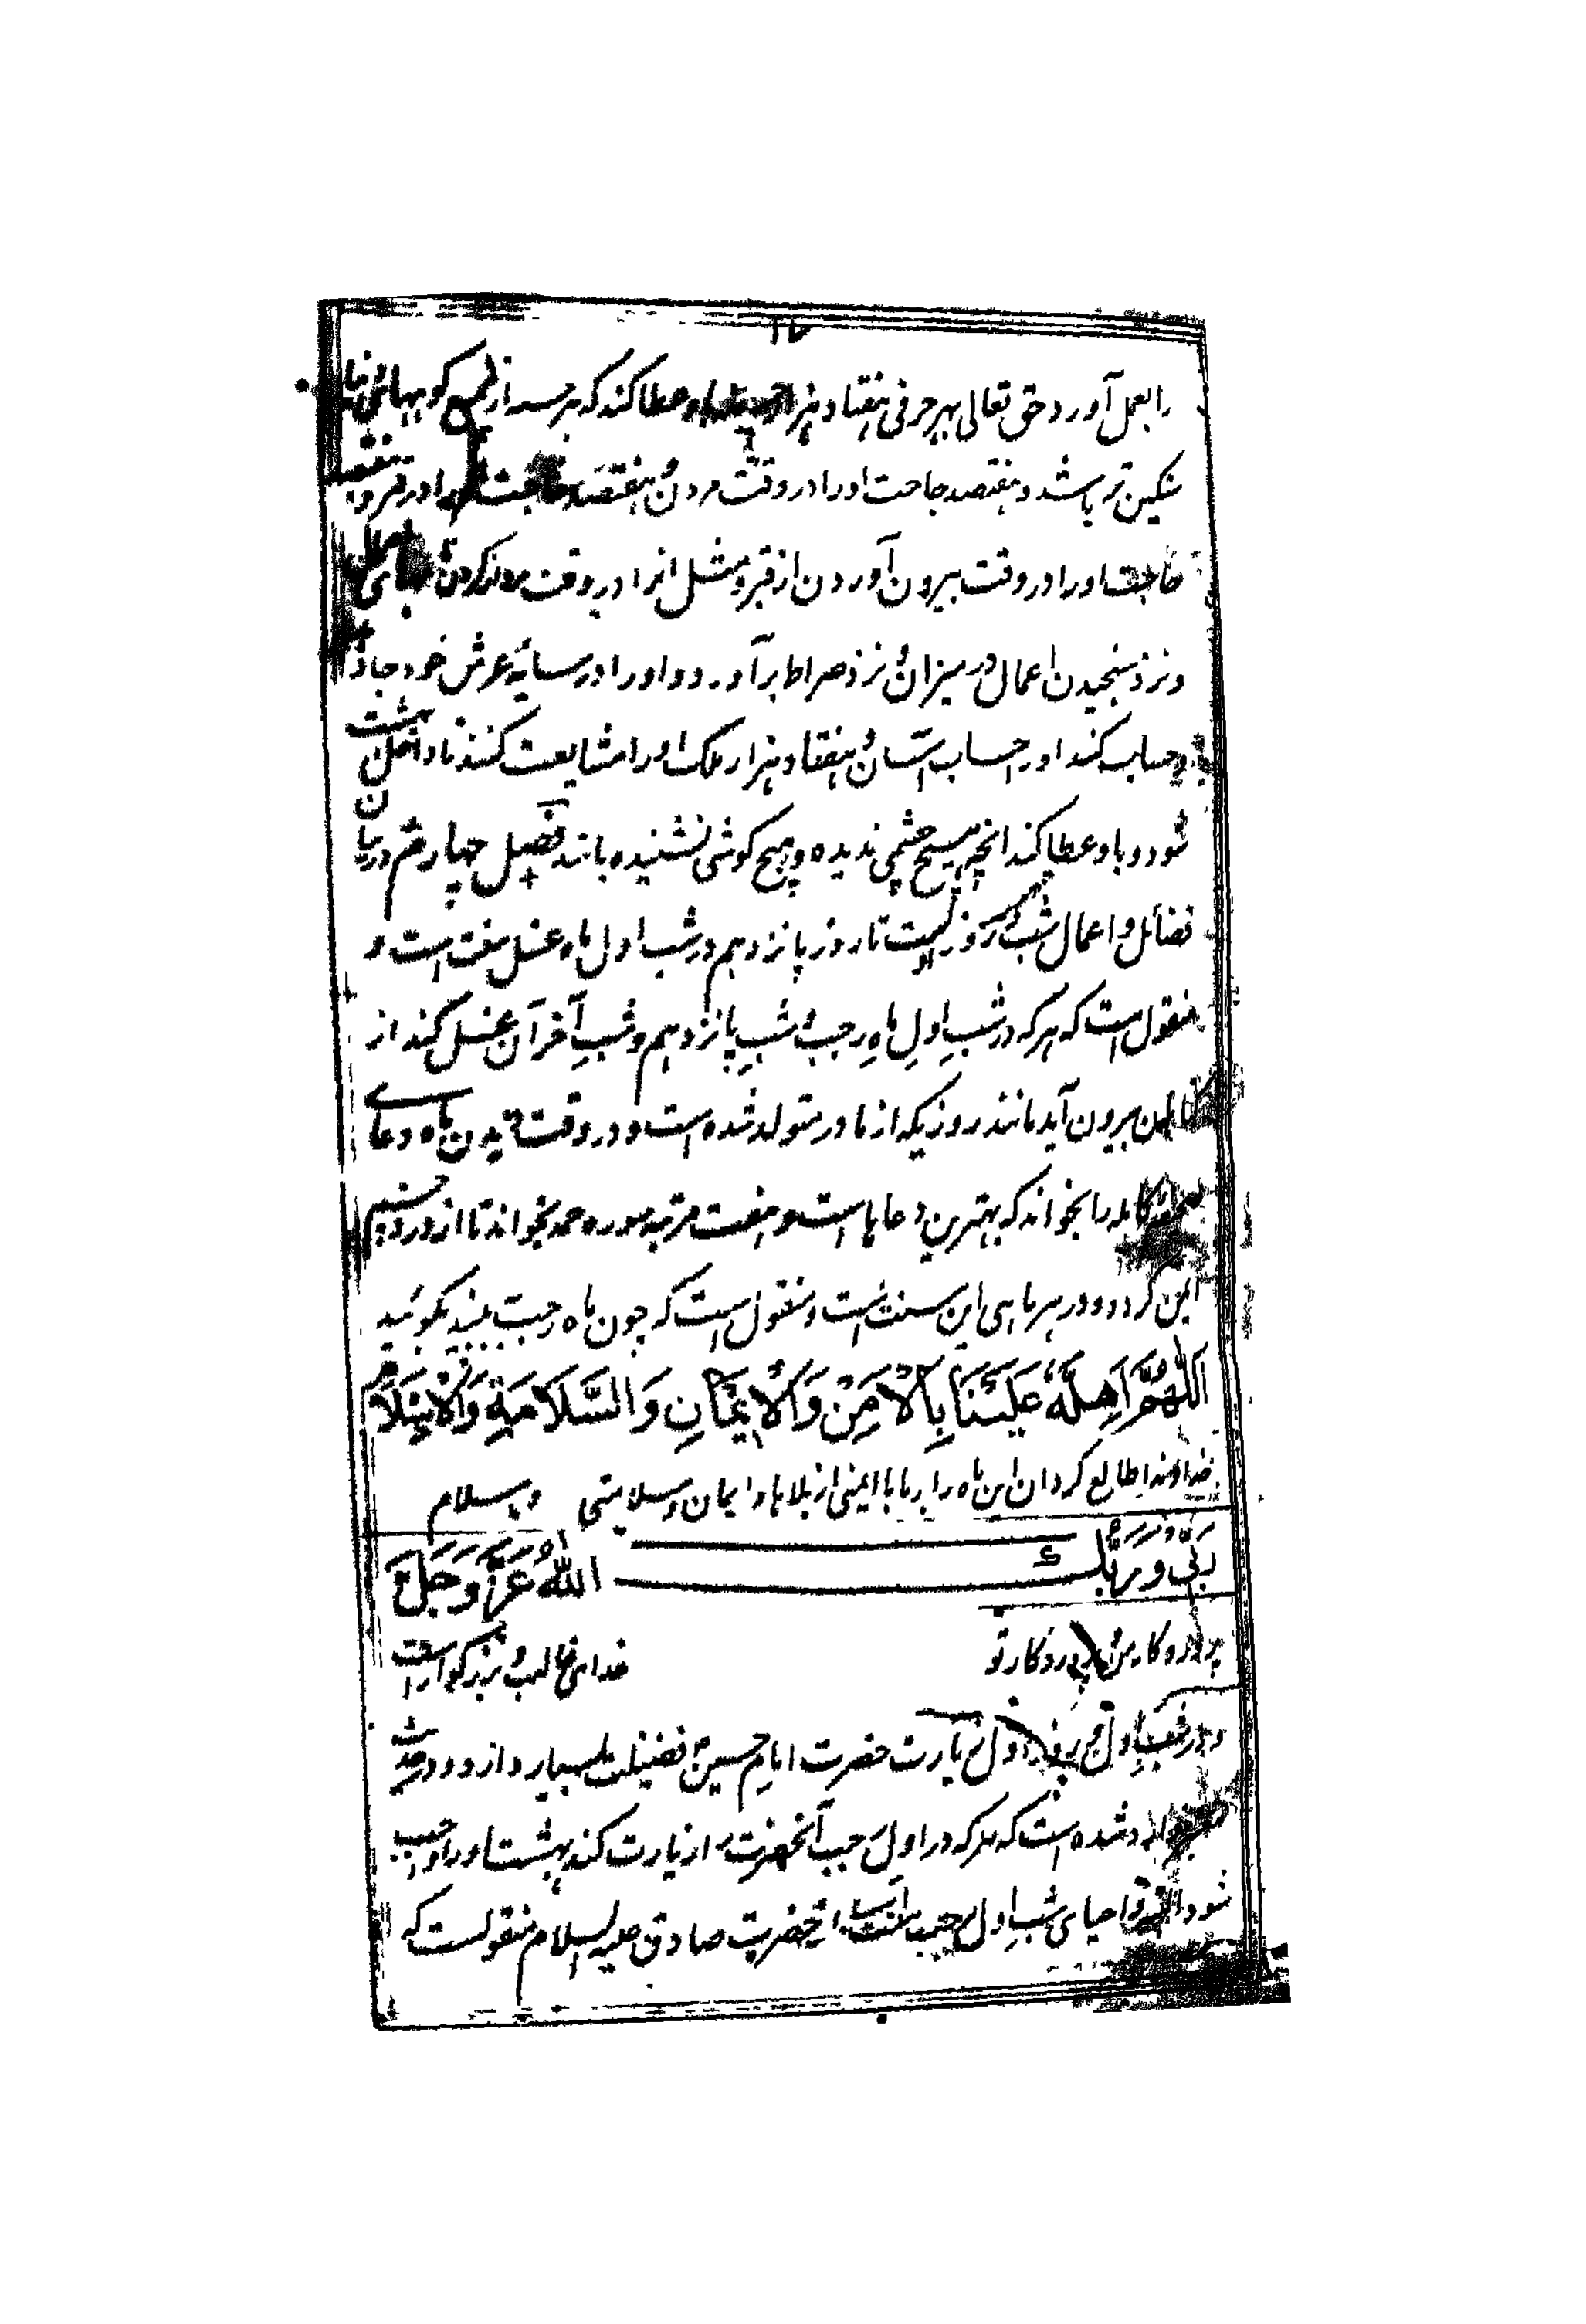 را بعمل آورد حق تعالی بهر حرفی هفتاد هزار حسنه باو عطا کند که هر حسنه از جمیع کوههای دنیا
سنگین تر باشد و هفتصد حاجت او را در وقت مردن و هفتصد حاجت او را در قبر و هفتصد
حاجت او را در وقت بیرون آوردن از قبر و مثل انرا در وقت نامهای اعمال
و نزد سنجیدن اعمال در میزان و نزد صراط برآورد و او را در سایه عرش خود جا
و حساب کند او را حساب آسان و هفتاد هزار ملک او را مشایعت کنند تا داخل بهشت
شود و باو عطا کند انچه هیچ چشمی ندیده و هیچ گوشی نشنیده باشد فصل چهارم در بیان
فضائل و اعمال شب و روز تا روز پانزدهم در شب اول ماه غسل سنت است و
منقول است که هر که در شبِ اولِ ماهِ رجب و شبِ پانزدهم و شبِ آخر آن غسل کند از
گناهان بیرون آید مانند روزیکه از مادر متولد شده است و در وقت دیدن ماه دعای
صحیفه کامله را بخواند که بهترین دعا ها است و هفت مرتبه سوره حمد بخواند تا از درد چشم
ایمن گردد و در هر ماهی این سنت است و منقول است که چون ماه رجب بینید بگوئید
اَللّٰهُمَّ اَهِلَّهٗ عَلَيْنَا بِالْاَمْنِ وَالْاِيْمَانِ وَالسَّلَامَةِ وَالْاِسْلَامِ
خداوندا طالع گردان این ماه را بر ما با ایمنی از بلاها و ایمان و سلامتی و اسلام
رَبِّيْ وَ رَبُّكَ اللّٰهُ عَزَّ وَ جَلَّ
پروردگار من و پروردگار تو خدای غالب و بزرگوار است
و در شب اول و روز اول زیارت حضرت امام حسین فضیلت بسیار دارد و در حدیث
وارد شده است که هر که در اول رجب آنحضرت را زیارت کند بهشت او را واجب
شود و احیای شبِ اول رجب سنت است از حضرت صادق علیه السلام منقولست که